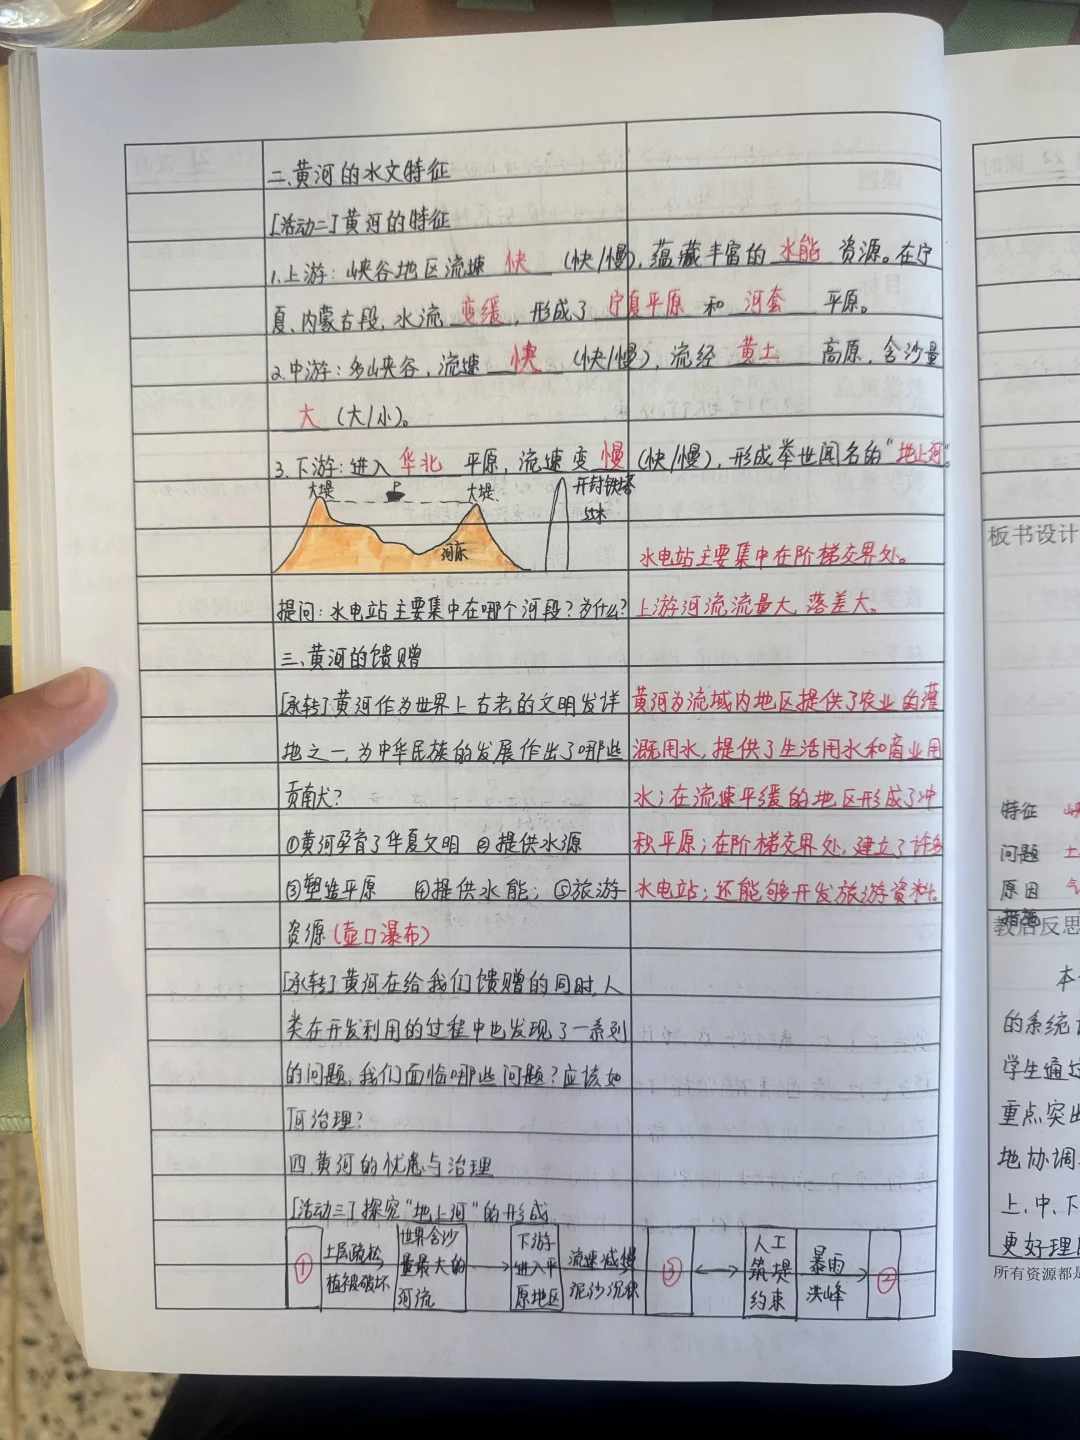 二、黄河的水文特征
[活动二]黄河的特征
1.上游：峡谷地区流速 快 (快/慢)，蕴藏丰富的 水能 资源。在宁
夏、内蒙古段，水流 变缓，形成了 宁夏平原 和 河套 平原。
2.中游：多山峡谷，流速 快 (快/慢)，流经 黄土 高原，含沙量
大 (大/小)。
3.下游：进入 华北 平原，流速变 慢 (快/慢)，形成举世闻名的"地上河"。
大堤 大堤 开封铁塔
河床
水电站主要集中在阶梯交界处。
提问：水电站主要集中在哪个河段？为什么？
上游河流流量大，落差大。
三、黄河的馈赠
[承转]黄河作为世界上古老的文明发详
地之一，为中华民族的发展作出了哪些
贡献？
①黄河孕育了华夏文明 ②提供水源
③塑造平原 ④提供水能；⑤旅游
资源(壶口瀑布)
黄河为流域内地区提供了农业的灌
溉用水，提供了生活用水和商业用
水；在流速平缓的地区形成了冲
积平原；在阶梯交界处，建立了许多
水电站；还能够开发旅游资料。
[承转]黄河在给我们馈赠的同时，人
类在开发利用的过程中也发现了一系列
的问题，我们面临哪些问题？应该如
何治理？
四、黄河的忧患与治理
[活动三]探究"地上河"的形成
① 土层疏松 植被破坏 世界含沙量最大的河流 下游进入平原地区 流速减慢 泥沙沉积 ③ 人工筑堤约束 暴雨洪峰 ②
板书设计
特征
问题 土
原因 气
措施
教后反思
本
的系统
学生通过
重点突出
地协调
上、中、下
更好理
所有资源都是